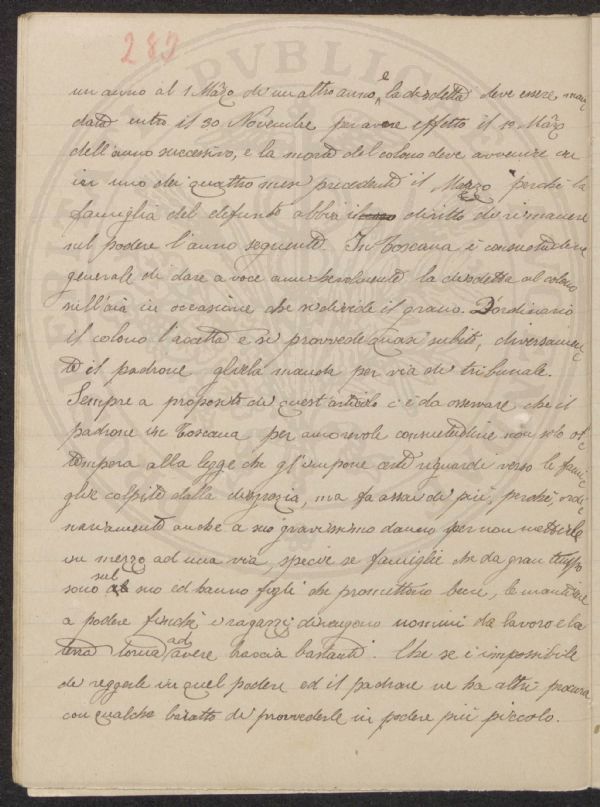 287
un anno al 1 Marzo di un altro anno, e la disdetta deve essere man=
data entro il 30 Novembre per avere effetto il 1º Marzo
dell'anno successivo, e la morte del colono deve avvenire in
in uno dei quattro mesi precedenti il Marzo perchè la
famiglia del defunto abbia il diritto di rimanere
sul podere l'anno seguente. In Toscana è consuetudine
generale di dare a voce amichevolmente la disdetta al colono
sull'aia in occasione che si divide il grano. D'ordinario
il colono l'accetta e si provvede quasi subito, diversamen=
te il padrone gliela manda per via di tribunale.
Sempre a proposito di quest'articolo c'è da osservare che il
padrone in Toscana per amorevole consuetudine non solo ot=
tempera alla legge che gl'impone certi riguardi verso le fami=
glie colpite dalla disgrazia, ma fa assai di più, perchè, ordi=
nariamente anche a suo gravissimo danno per non metterle
in mezzo ad una via, specie se famiglie che da gran tempo
sono sul suo ed hanno figli che promettono bene, le mantiene
a podere finchè i ragazzi divengono uomini da lavoro e la
terra torna ad avere braccia bastanti. Che se è impossibile
di reggerle in quel podere ed il padrone ne ha altri procura
con qualche baratto di provvederle in podere più piccolo.